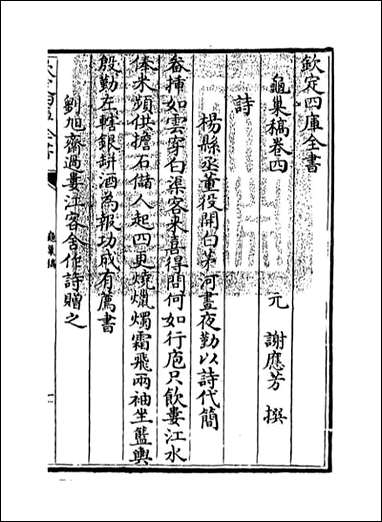 欽定四庫全書
龜巢稿卷四
元 謝應芳 撰
詩
楊縣丞董役開白茅河晝夜勤以詩代簡
畚揷如雲穿白渠客来喜得問何如行庖只飲婁江水
俸米頻供擔石儲人起四更燒爉燭霜飛兩袖坐籃輿
殷勤左轄銀缾酒為報功成有薦書
劉旭齋過婁江客舍作詩贈之
龜巢稿